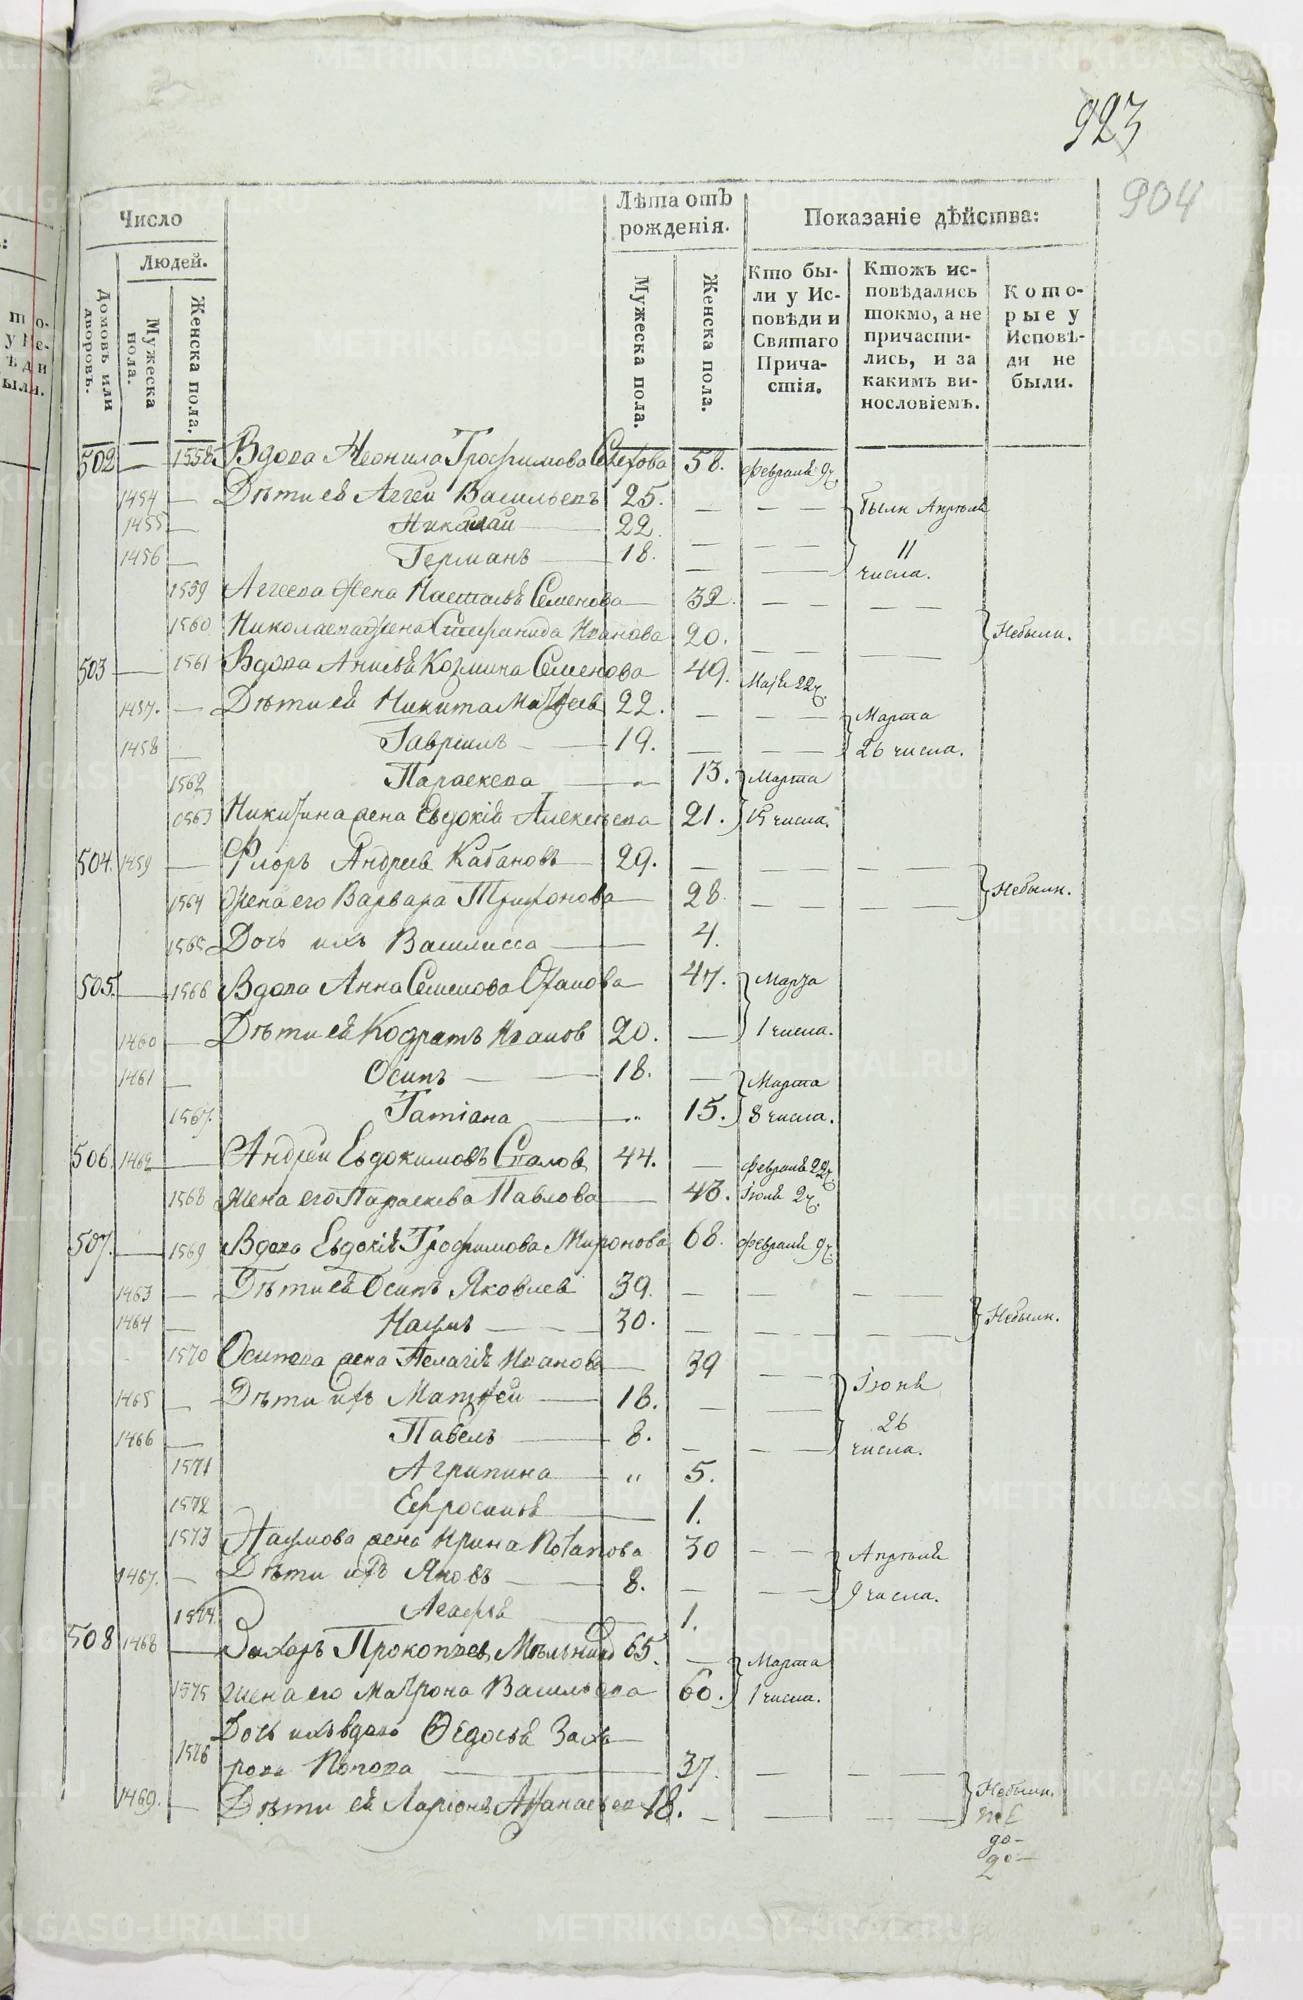 923
904
Число
Людей.
Домовъ или дворовъ.
Мужеска пола.
Женска пола.
Лѣта отъ рожденія.
Мужеска пола.
Женска пола.
Показаніе дѣйства:
Кто бы-
ли у Ис-
повѣди и
Святаго
Прича-
стія.
Ктожъ ис-
повѣдались
токмо, а не
причасти-
лись, и за
какимъ ви-
нословіемъ.
Кото-
рые у
Исповѣ-
ди не
были.
502 — 1558 Вдова Неонила Трофимова 58. февраля 9ч.
1454 — Дѣти ея Аггей Васильевъ 25. — — — были Апрѣля
1455 — Николай — 22.
1456 — Германъ — 18. — — — 11 числа.
1559 Аггеева жена Наталья Семенова — 32. — — — —
1560 Николаева жена Стефанида Иванова 20. — — — — Небыли.
503 — 1561 Вдова Анисья Козмина Семенова 49. Маія 22ч.
1457. — Дѣти ея Никита Матѳеев 22. — — — Марта
1458 — Гавріилъ — 19. — — — 26 числа.
1562 Параскева — 13. Марта
1563 Никитина жена Евдокія Алексѣева 21. 15 числа.
504. 1459 — Флоръ Андреев Кабановъ — 29. — — — —
1564 жена его Варвара Трифонова — 28 — — — — Небыли.
1565 Дочь ихъ Василисса — 4.
505. — 1566 Вдова Анна Семенова 47. Марта
1460 — Дѣти ея Кодратъ Иванов 20. — 1 числа.
1461 — Осипъ — 18. — Марта
1567. Татіана — 15. 8 числа.
506. 1462 — Андрей Евдокимовъ 44. — февраля 22ч.
1568 жена его Параскева Павлова — 43. Іюня 2ч.
507. — 1569 Вдова Евдокія Трофимова Миронова 68. февраля 9ч.
1463 — Дѣти ея Осипъ Яковлев 39. — — — —
1464 — Наумъ — 30. — — — — Небыли.
1570 Осипова жена Пелагія Иванова — 39 — — Іюня
1465 — Дѣти ихъ Матѳей — 18. — — — 26
1466 — Павелъ — 8. — — — числа.
1571 Агрипина — 5.
1572 Ефросинья — 1.
1573 Наумова жена Ирина Потапова 30 — — Апрѣля
1467. — Дѣти ихъ Яковъ — 8. — — — 9 числа.
1574. Агафья — 1.
508 1468 — Захаръ Прокопьев 65. — Марта
1575 жена его Матрона Васильева 60. 1 числа.
1576 Дочь ихъ вдова Ѳедосья Заха-
рова Попова — 37. — — — —
1469. — Дѣти ея Ларіонъ 18. — — — Небыли.